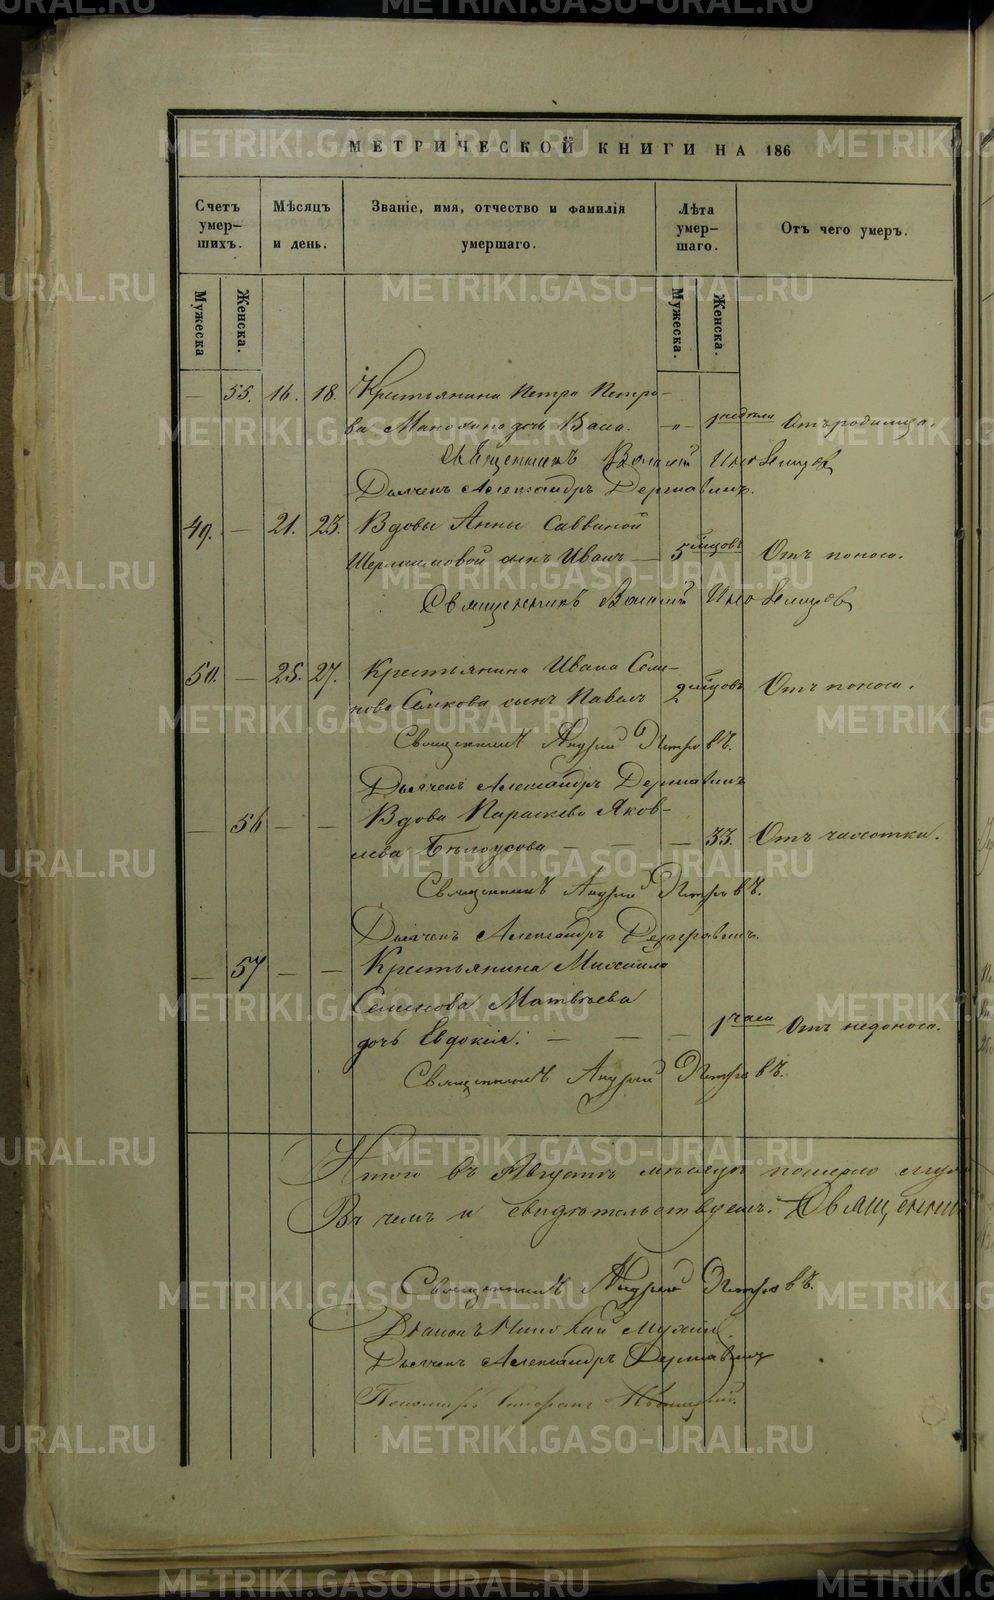 МЕТРИЧЕСКОЙ КНИГИ НА 186
Счетъ умер-шихъ. Мѣсяцъ и день. Званіе, имя, отчество и фамилія умершаго. Лѣта умер-шаго. Отъ чего умеръ.
Мужеска Женска. Мужеска. Женска.
— 55. 16. 18. Крестьянина Петра Петро-
ва дочь —„— 1 недели Отъ родимца.
Священникъ
Дьячекъ Александръ Державинъ.
49. — 21. 23. Вдовы Анны Саввиной
сынъ Иванъ — 5 мѣсцовъ Отъ поноса.
Священникъ
50. — 25. 27. Крестьянина Ивана Семе-
нова сынъ Павелъ 2 мѣсцовъ Отъ поноса.
Священникъ Андрей Петровъ.
Дьячекъ Александръ Державинъ
— 56 — — Вдова Параскева Яков-
лева Бѣлоусова — — — 33. Отъ чахотки.
Священникъ Андрей Петровъ.
Дьячекъ Александръ Державинъ.
— 57 — — Крестьянина Михаила
Семенова Матвѣева
дочь Евдокія. — — — 1 часа Отъ недоноса.
Священникъ Андрей Петровъ.
Итого въ Августѣ мѣсяцѣ померло
Въ чемъ и свидѣтельствуемъ.
Священникъ Андрей Петровъ.
Дьяконъ Николай
Дьячекъ Александръ Державинъ
Пономарь
METRIKI.GASO-URAL.RU